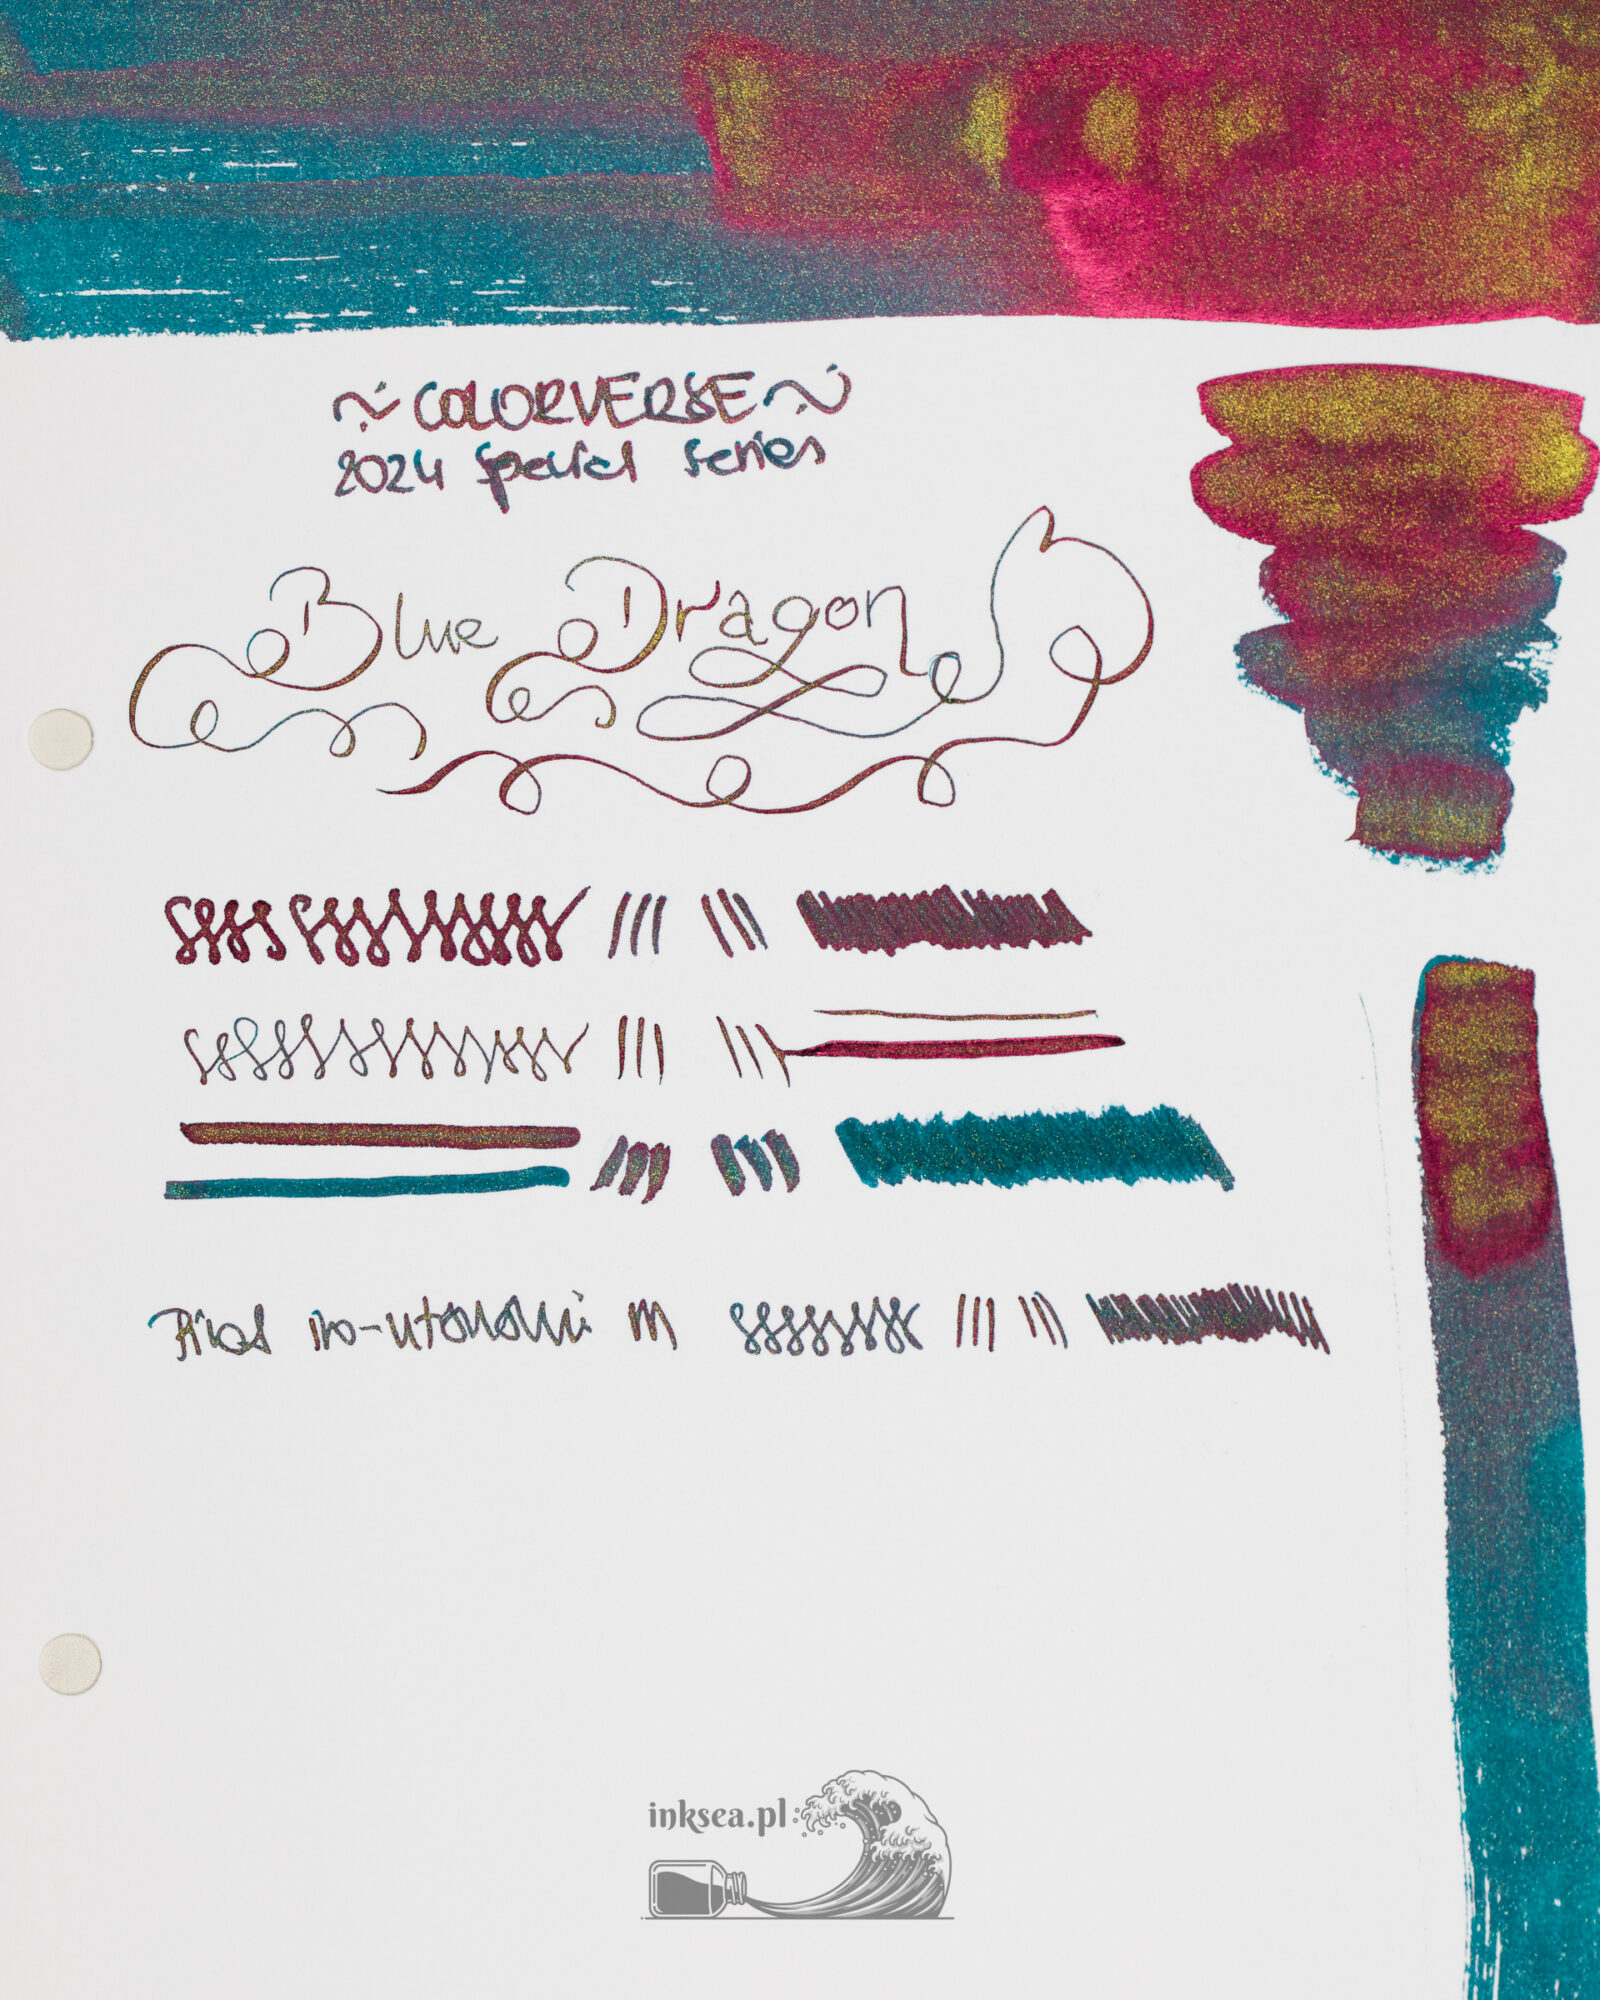 ~ COLORVERSE ~
2024 Special Series
Blue Dragon
Pilot iro-utsushi M
inksea.pl